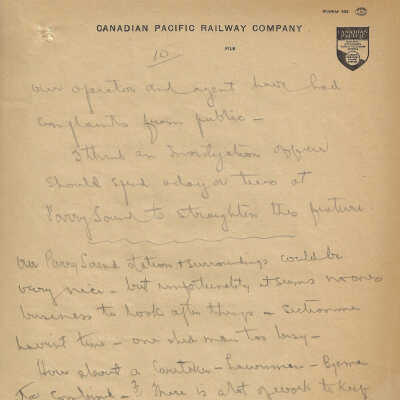 CANADIAN PACIFIC RAILWAY COMPANY
FILE
CANADIAN PACIFIC
10
our operator and agent have had
complaints from public -
I think an Investigation officer
should spend a day or two at
Parry Sound to straighten this feature.
Our Parry Sound station & surroundings could be
very nice - but unfortunately it seems no ones
business to look after things - Sectionmen
havint time - one shed man too busy -
How about a Caretaker - Lawnman -
combined - ? There is a lot of work to keep